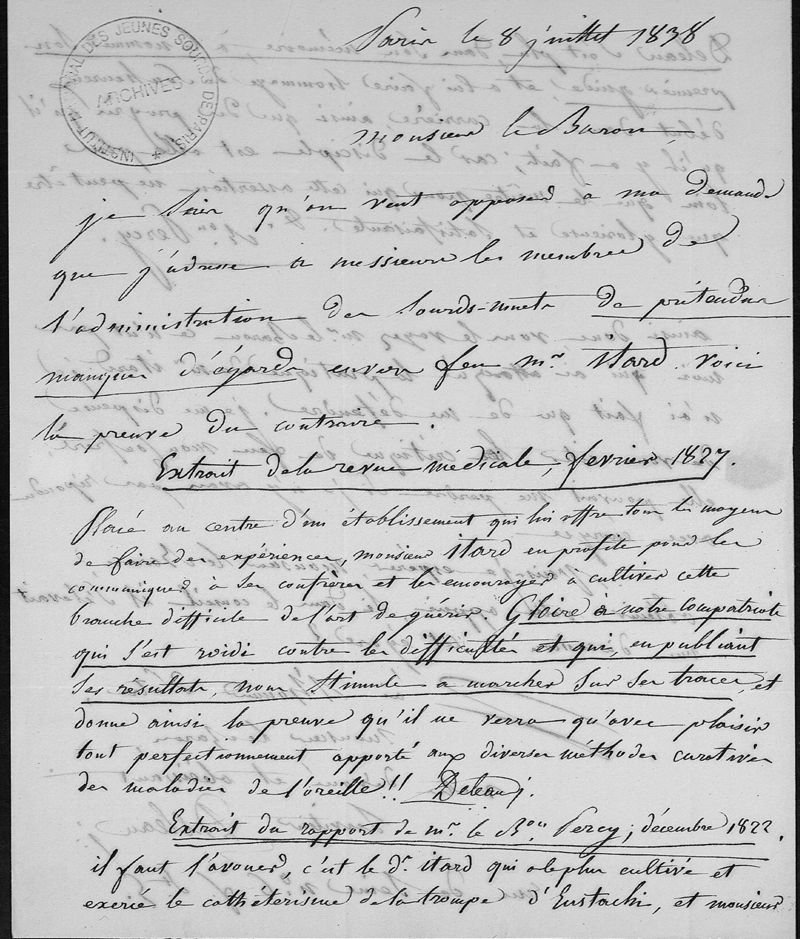 Paris le 8 juillet 1838
INSTITUT NATIONAL DES JEUNES SOURDS DE PARIS
ARCHIVES
Monsieur le Baron,
je sais qu'on veut opposer à ma demande
que j'adresse à messieurs les membres de
l'administration des sourds-muets de prétendus
manques d'égards envers feu mr. itard. voici
la preuve du contraire.
Extrait de la revue médicale, fevrier 1827.
Placé au centre d'un établissement qui lui offre tous les moyens
de faire des expériences, monsieur itard en profite pour les
communiquer à ses confrères et les encourager à cultiver cette
branche difficile de l'art de guérir. Gloire à notre compatriote
qui s'est roidi contre les difficultés et qui, en publiant
ses résultats, nous stimule à marcher sur ses traces, et
donne ainsi la preuve qu'il ne verra qu'avec plaisir
tout perfectionnement apporté aux diverses méthodes curatives
des maladies de l'oreille!! Deleau j.
Extrait du rapport de mr. le Bon. Percy; décembre 1822.
il faut l'avouer, c'est le dr. itard qui a le plus cultivé et
exercé le cathétérisme de la trompe d'Eustachi, et monsieur